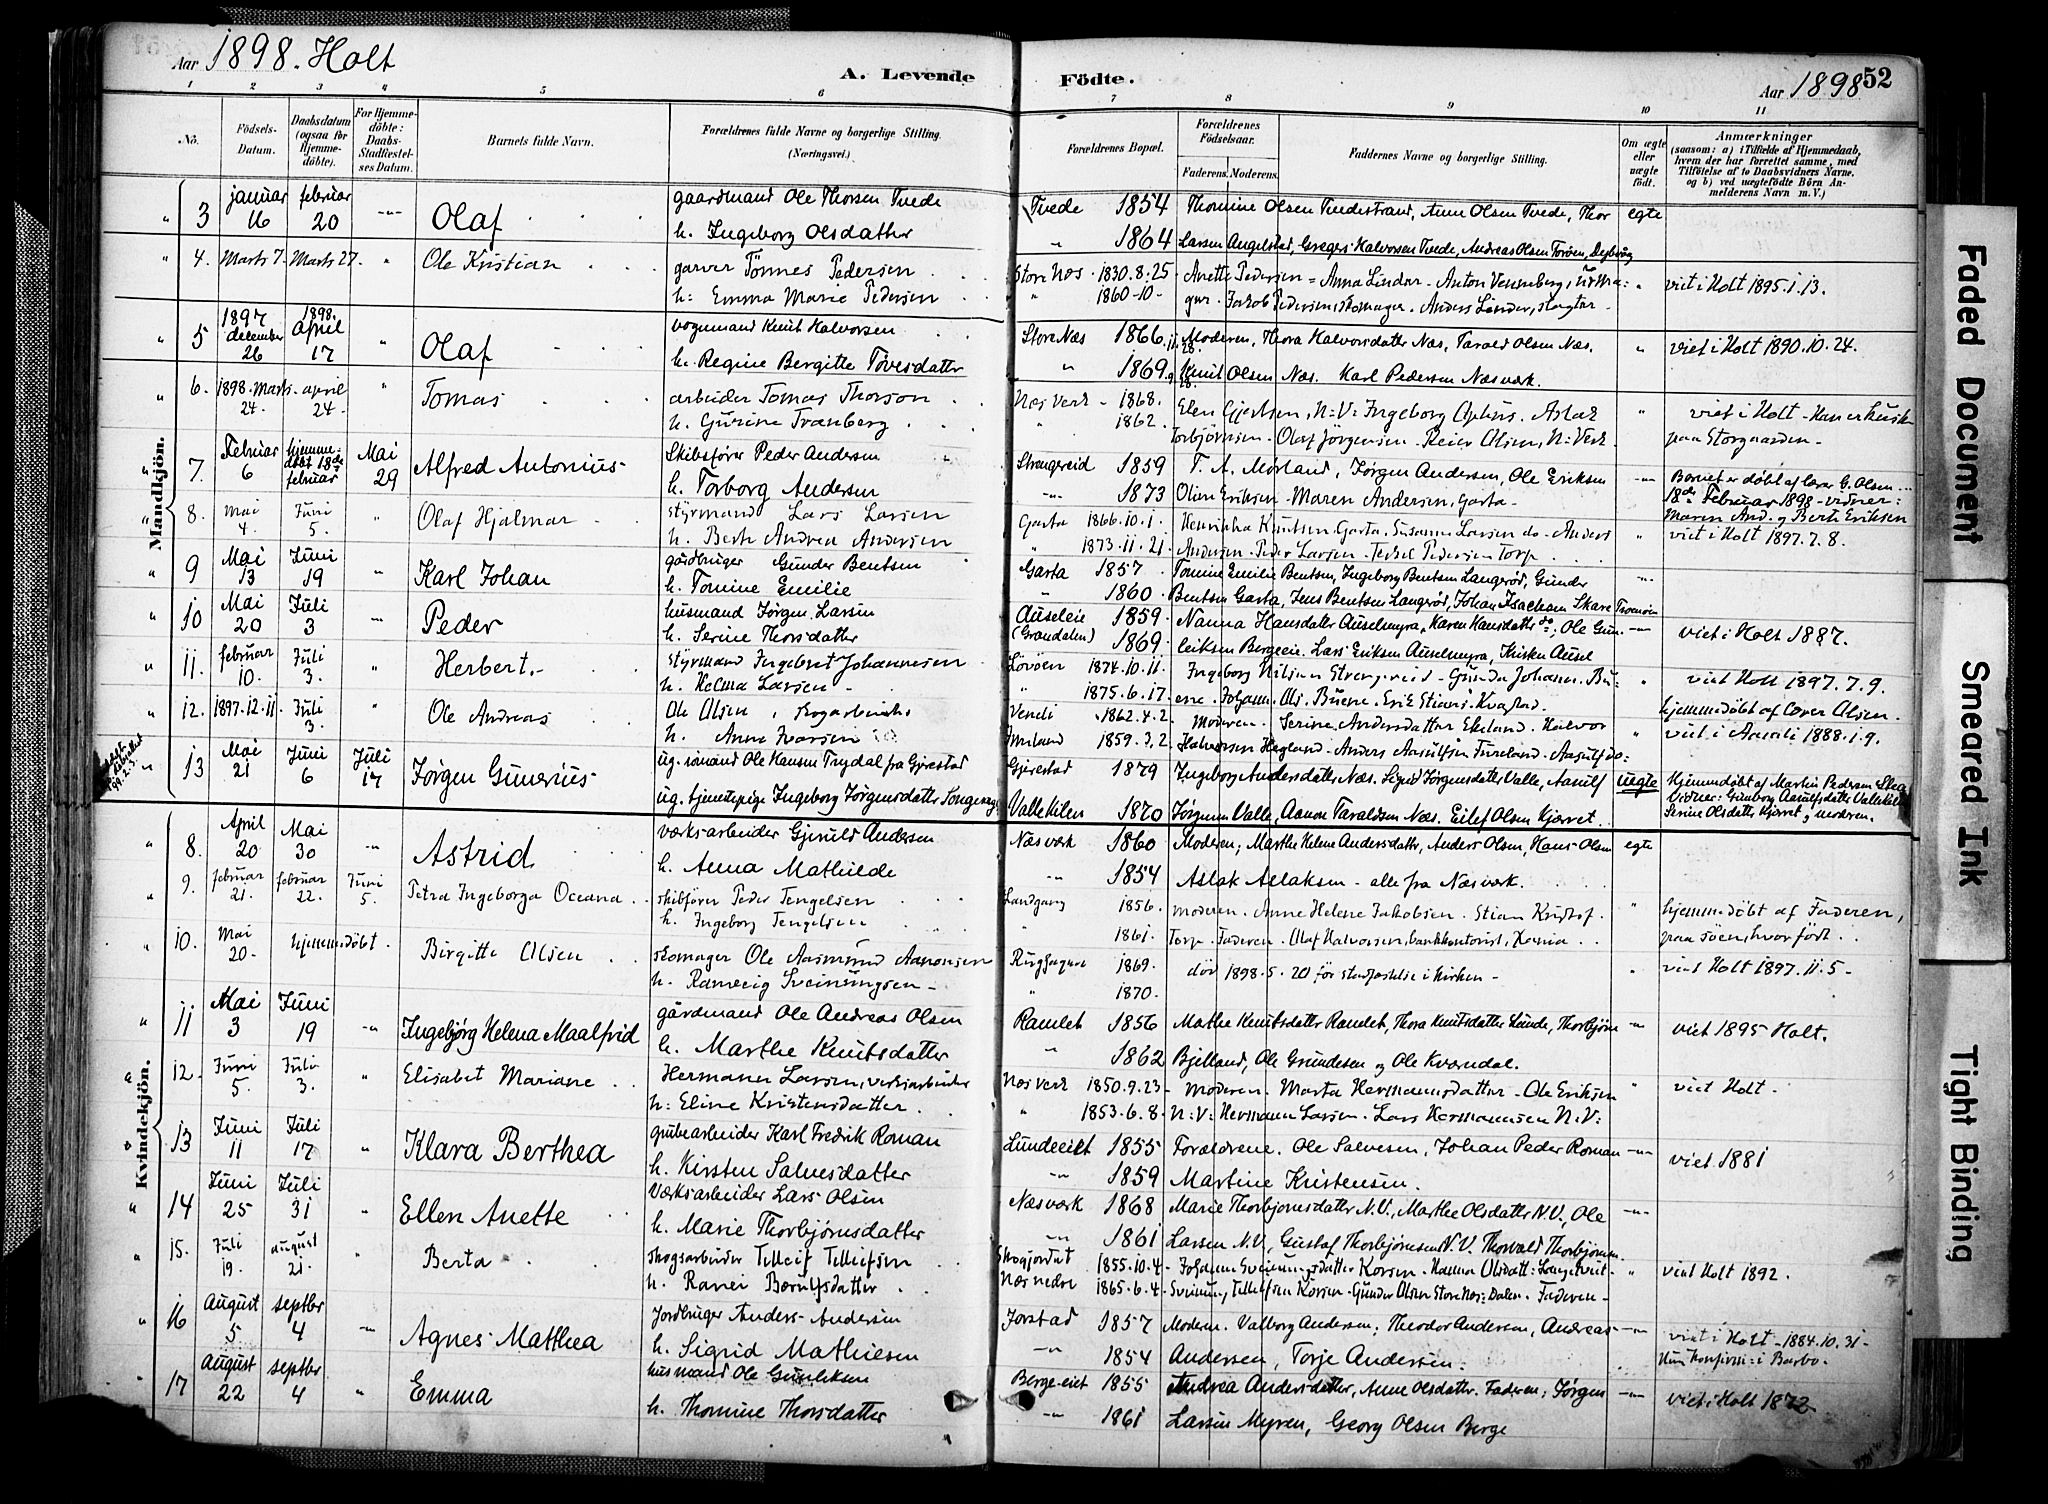 Aar 1898. Holt
A. Levende Födte.
Aar 1898 52
1 2 3 4 5 6 7 8 9 10 11
No.
Födsels-Datum.
Daabsdatum (ogsaa for Hjemmedöbte).
For Hjemmedöbte: Daabs-Stadfæstelses Datum.
Barnets fulde Navn.
Forældrenes fulde Navne og borgerlige Stilling. (Næringsvei.)
Forældrenes Bopæl.
Forældrenes Födselsaar.
Faderens. Moderens.
Faddernes Navne og borgerlige Stilling.
Om ægte eller uægte födt.
Anmærkninger
(saasom: a) i Tilfælde af Hjemmedaab, hvem der har forrettet samme, med Tilföielse af to Daabsvidners Navne. og b) ved uægtefödte Börn Anmelderens Navn m.V.)
Mandkjön.
3 januar 16 februar 20 Olaf gaardmand Ole Thorsen Tvede Tvede 1854 Thomine Olsen Tvedestrand, Anne Olsen Tvede, Thor egte
h. Ingeborg Olsdatter " 1864 Larsen Angelstad, Gregers Halvorsen Tvede, Andreas Olsen
4. Marts 7. Marts 27 " Ole Kristian garver Tönnes Pedersen Store Næs 1830.8.25 Anette Pedersen = Anna Lindar - Anton " viet i Holt 1895.1.13.
h: Emma Marie Pedersen " 1860-10- Jakob Pedersen, skomager. Anders Linder, slagter
5 1897 december 26 1898. April 17 " Olaf vognmand Knut Halvorsen Store Næs 1866 Moderen, Thora Halvorsdatter Næs, Tarald Olsen Næs. " viet i Holt 1890.10.24.
h. Regine Bergitte Tovesdatter " 1869 Knut Olsen Næs. Karl Pedersen Næsværk.
6. 1898. Marts 24. april 24. " Tomas arbeider Tomas Thorson Næs Verk 1868. Elen Gjertsen, N:V: Ingeborg Aslak " viet i Holt
h. Gurine Tranberg " 1862. Torbjörnsen - Olaf Jörgensen - Reier Olsen, N: Verk paa Storgaarden -
7. Februar 6 hjemmedöbt 18de februar Mai 29 Alfred Antonius Skibsförer Peder Andersen Strengereid 1859 T. A. Mørland, Jørgen Andersen, Ole Eriksen Barnet er döbt af lærer G. Olsen
h. Torborg Andersen 1873 Olive Eriksen - Maren Andersen, Garta - 18de Februar 1898 - vidner: Maren And. og Berte Eriksen
8. Mai 4. Juni 5. " Olaf Hjalmar styrmand Lars Larsen Garta 1866.10.1. Henrikka Knutsen Garta, Susanne Larsen do - Anders " viet i Holt 1897.7.8.
h. Berte Andrea Andersen " 1873.11.21 Andersen - Peder Larsen - Pedersen Torp
9 Mai 13 Juni 19 Karl Johan gårdbruger Gunder Bentsen Garta 1857 Tomine Emilie Bentsen, Ingeborg Bentsen Langerød, Gunder
h. Tomine Emilie " 1860. Bentsen Garta, Jens Bentsen Langerød, Johan Isachsen Skare Tromøen
10 Mai 20 Juli 3 Peder husmand Jørgen Larsen Auseleie 1859 Nanna Hansdatter Auselmyra, Karen Hansdatter do, Ole Gun- viet i Holt 1887.
h. Serine Thorsdatter (Grandalen) 1869. leiksen Bergeie. Lars Eriksen Auselmyra, Kirsten Ausel
11. februar 10. Juli 3. " Herbert. styrmand Ingebret Johannesen 1874.10.11. Ingeborg Nilsen Strengereid - Gunda Johann. Bu- " viet Holt 1897.7.9.
h. Helma Larsen " 1875.6.17.
12. 1897.12.11. Juli 3. " Ole Andreas Ole Olsen, skogarbeider 1862.4.2. Moderen. Serine Andersdatter Ekeland. Halvor hjemmedöbt af Lærer Olsen.
h. Anne Ivarsen 1859.3.2. Halvorsen Hegland - Anders viet i 1888.1.9.
13 Mai 21 Juni 6 Juli 17 Jørgen Gunerius ug. sömand Ole Hansen Trydal fra Gjerestad Gjerestad 1879 Ingeborg Andersdatter Næs. Sigrid Jørgensdatter Valle, uegte Hjemmedøbt af Martin Pedersen
ug. tjenestepige Ingeborg Jørgensdatter Vallekilen 1870 Jørgen Valle, Aanon Taraldsen Næs. Eilef Olsen Kjørret. Vidner: Gunborg Serine Olsdatter Kjørret, moderen.
Kvindekjön.
8. April 20 Mai 30 Astrid værksarbeider Gjeruld Andersen Næsværk 1860 Moderen; Marthe Helene Andersdatter, Anders Olsen, Hans Olsen egte
h. Anna Mathilde 1854 Aslak Aslaksen - alle fra Næsværk.
9. februar 21. februar 22. Juni 5. Petra Ingeborga Oceana skibförer Peder Tengelsen Landgang 1856. Moderen. Anne Helene Jakobsen. Stian Kristof. " hjemmedöbt af Faderen,
h. Ingeborg Tengelsen 1861. Torp. Faderen. Olaf Halvorsen, bankkontorist, paa søen, hvor födt.
10. Mai 20. hjemmedöbt. Birgitte Olsen skomager Ole Aasmund Aanonsen 1869. död 1898.5.20 för stadfæstelse i kirken - " viet Holt 1897.11.5-
h. Ramveig Sveinungsen 1870.
11 Mai 3 Juni 19 Ingebjørg Helena Maalfrid gårdmand Ole Andreas Olsen Ramlet 1856 Mathe Knutsdatter Ramlet, Thora Knutsdatter Lunde, Thorbjørn viet 1895 Holt.
h. Marthe Knutsdatter " 1862 Bjelland, Ole Grundesen og Ole Kvændal.
12. Juni 5. Juli 3. " Elisabet Mariane Hermann Larsen, verksarbeider Næs Verk 1850.9.23 Moderen. Marta Hermannsdatter - Ole Eriksen " viet Holt -
h: Eline Kristensdatter. " 1853.6.8. N:V: Hermann Larsen. Lars Hermannsen N:V:
13 Juni 11 Juli 17 " Klara Berthea grubearbeider Karl Fredrik Roman Lundeeiet 1855 Forældrene. Ole Salvesen, Johan Peder Roman viet 1881
h. Kirsten Salvesdatter 1859 Martine Kristensen.
14 Juni 25 Juli 31 " Ellen Anette Værksarbeider Lars Olsen Næsværk 1868 Marie Thorbjørnsdatter N.V., Marthe Olsdatter N.V., Ole
h. Marie Thorbjørnsdatter 1861 Larsen N.V., Gustaf Thorbjørnsen N.V. Thorvald Thorbjørnsen
15. Juli 19. august 21. " Berta skogsarbeider Tellef Tellefsen 1855.10.4 Johanne Sveinungsdatter - Hanna Olsdatt: " viet Holt 1892.
h. Ranei Bærulfsdatter Næs nedre 1865.6.4 Sveinung Tellefsen - Gunder Olsen Store Næs: Dalen. Faderen -
16 August 5 septbr 4 Agnes Matthea Jordbruger Anders Andersen Jorstad 1857 Moderen. Valborg Andersen; Theodor Andersen, Andreas viet i Holt - 1884.10.31
h. Sigrid Mathiesen 1854 Andersen, Torje Andersen. Hun konfirm: i Barbo.
17 August 22 septbr 4 " Emma husmand Ole Gunleksen Berge-eiet 1855 Andrea Andersdatter, Anne Olsdatter. Faderen; Jørgen viet i Holt 1872
h. Thomine Thorsdatter 1861 Larsen Myren, Georg Olsen Berge
Faded Document
Smeared Ink
Tight Binding